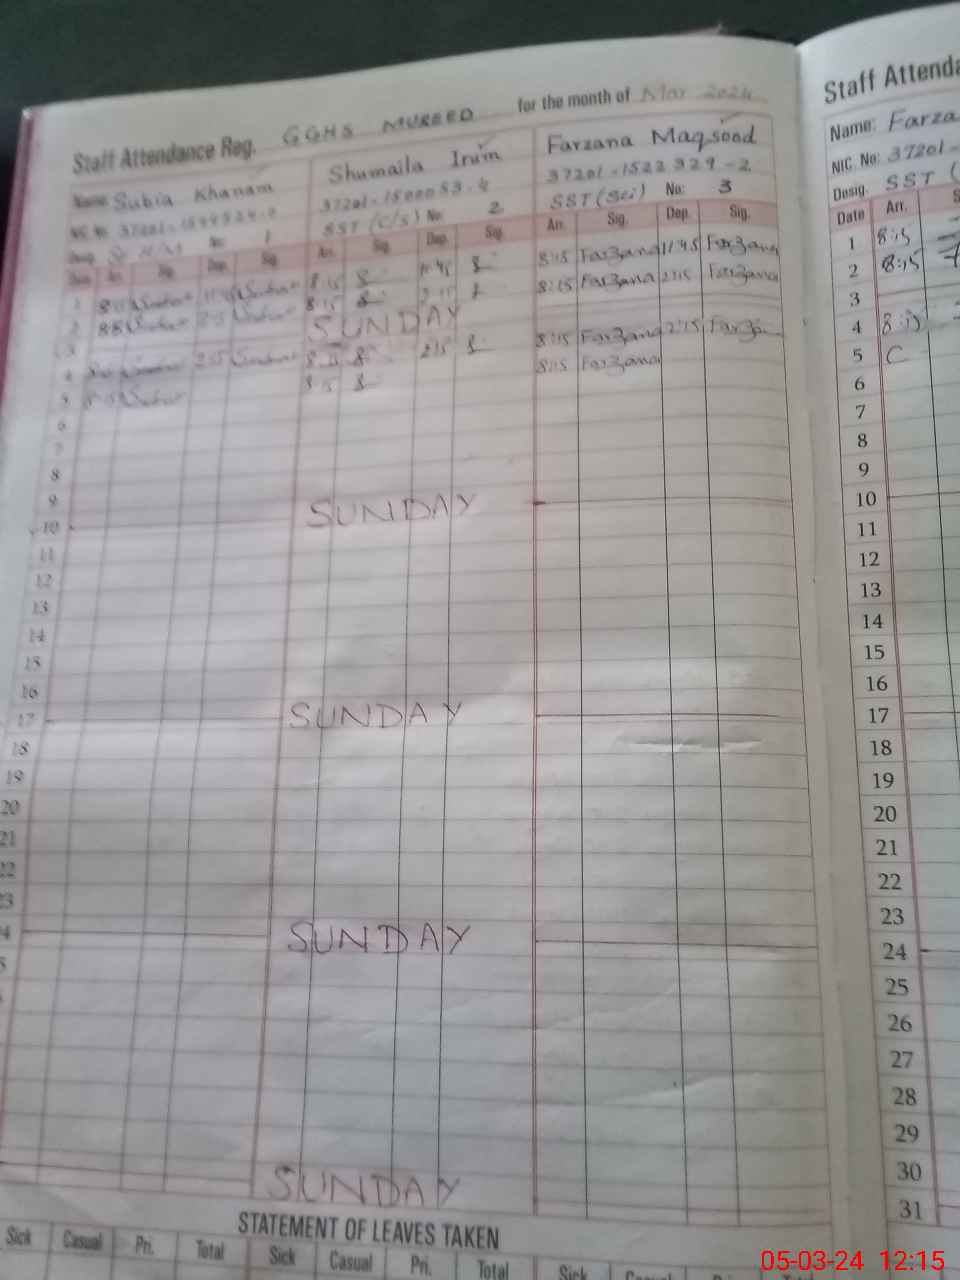 Staff Attendance Reg. GGHS MUREED for the month of Mar 2024
Name: Subia Khanam Shumaila Irum Farzana Maqsood
37201-1500053-4 37201-1522329-2
No: 1 SST (C/S) No: 2 SST (Sci) No: 3
Date Arr. Sig. Dep. Sig. Arr. Sig. Dep. Sig. Arr. Sig. Dep. Sig.
1 8:15 11:45 8:15 11:45 8:15 Farzana 11:45 Farzana
2 8:15 2:15 8:15 2:15 8:15 Farzana 2:15 Farzana
3 SUNDAY
4 2:15 8:15 2:15 8:15 Farzana 2:15 Farzana
5 8:15 8:15 8:15 Farzana
6
7
8
9
10 SUNDAY
11
12
13
14
15
16
17 SUNDAY
18
19
20
21
22
23
4 SUNDAY
5
SUNDAY
STATEMENT OF LEAVES TAKEN
Sick Casual Pri. Total Sick Casual Pri. Total Sick Casual
Staff Attenda
Name: Farza
NIC. No: 37201-
Desig. SST (
Date Arr. S
1 8:15
2 8:15
3
4 8:15
5 C
6
7
8
9
10
11
12
13
14
15
16
17
18
19
20
21
22
23
24
25
26
27
28
29
30
31
05-03-24 12:15